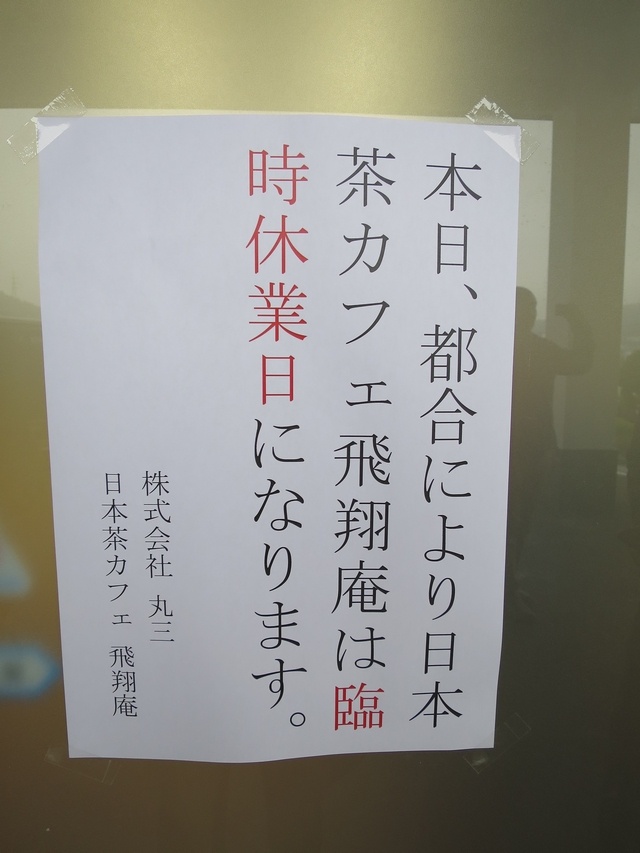 本日、都合により日本
茶カフェ飛翔庵は臨
時休業日になります。
株式会社 丸三
日本茶カフェ 飛翔庵